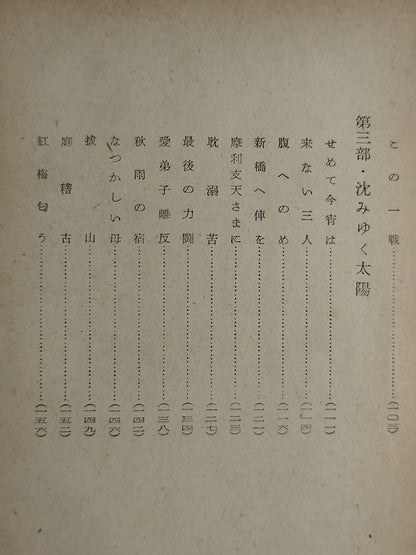 この一戦……(一〇三)
第三部・沈みゆく太陽
せめて今宵は……(一一一)
来ない三人……(一一四)
腹へのめ……(一一六)
新橋へ俥を……(一二一)
摩利支天さまに……(一二三)
耽溺苦……(一二七)
最後の力闘……(一三四)
愛弟子離反……(一三八)
秋雨の宿……(一四二)
なつかしい母……(一四六)
拔山……(一四九)
庭稽古……(一五二)
紅梅匂う……(一五六)